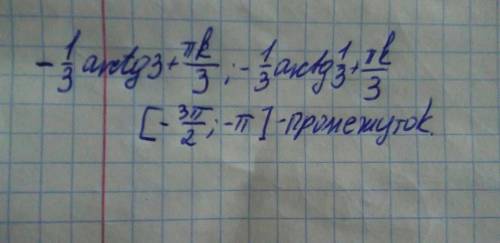 -1/3 arctg 3 + πk/3 ; -1/3 arctg 1/3 + πk/3
[-3π/2 ; -π] - промежуток.